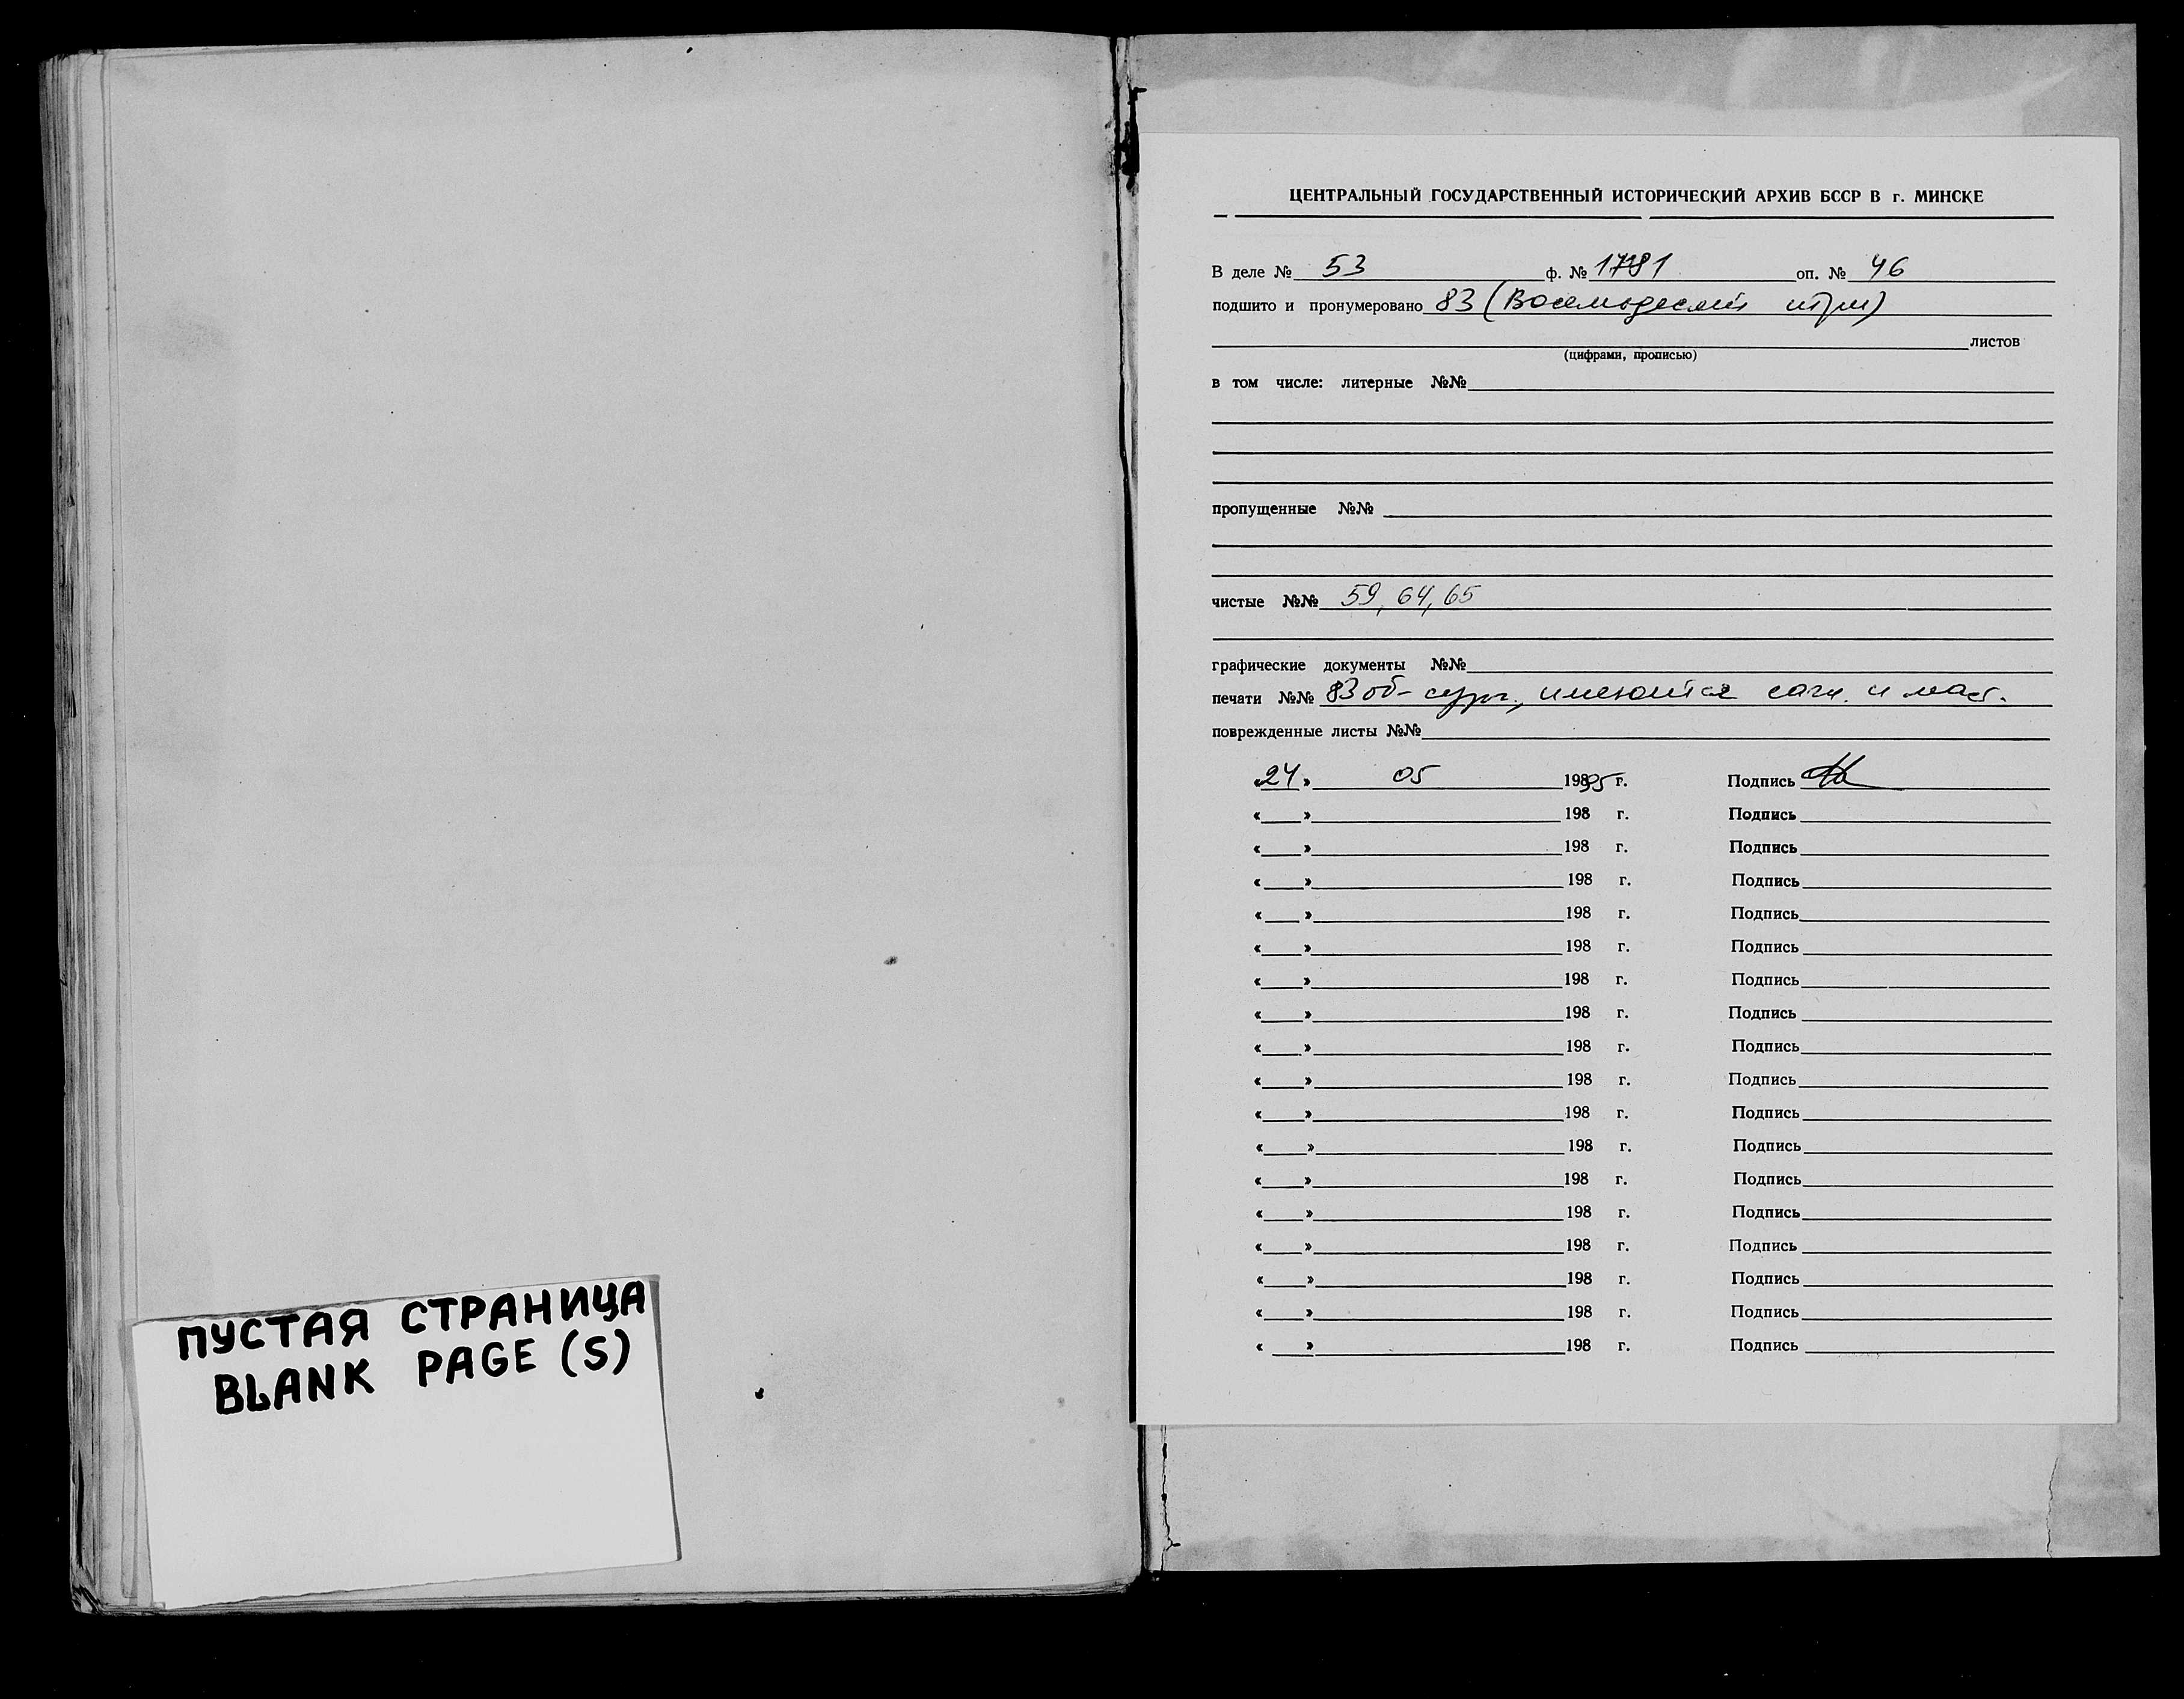 ПУСТАЯ СТРАНИЦА
BLANK PAGE (S)
ЦЕНТРАЛЬНЫЙ ГОСУДАРСТВЕННЫЙ ИСТОРИЧЕСКИЙ АРХИВ БССР В г. МИНСКЕ
В деле № 53 ф. № 1781 оп. № 46
подшито и пронумеровано 83 (Восемьдесят три)
листов
(цифрами, прописью)
в том числе: литерные №№
пропущенные №№
чистые №№ 59, 64, 65
графические документы №№
печати №№ 83 об - сург., имеются и
поврежденные листы №№
«24» 05 19895 г. Подпись
« » 198 г. Подпись
« » 198 г. Подпись
« » 198 г. Подпись
« » 198 г. Подпись
« » 198 г. Подпись
« » 198 г. Подпись
« » 198 г. Подпись
« » 198 г. Подпись
« » 198 г. Подпись
« » 198 г. Подпись
« » 198 г. Подпись
« » 198 г. Подпись
« » 198 г. Подпись
« » 198 г. Подпись
« » 198 г. Подпись
« » 198 г. Подпись
« » 198 г. Подпись